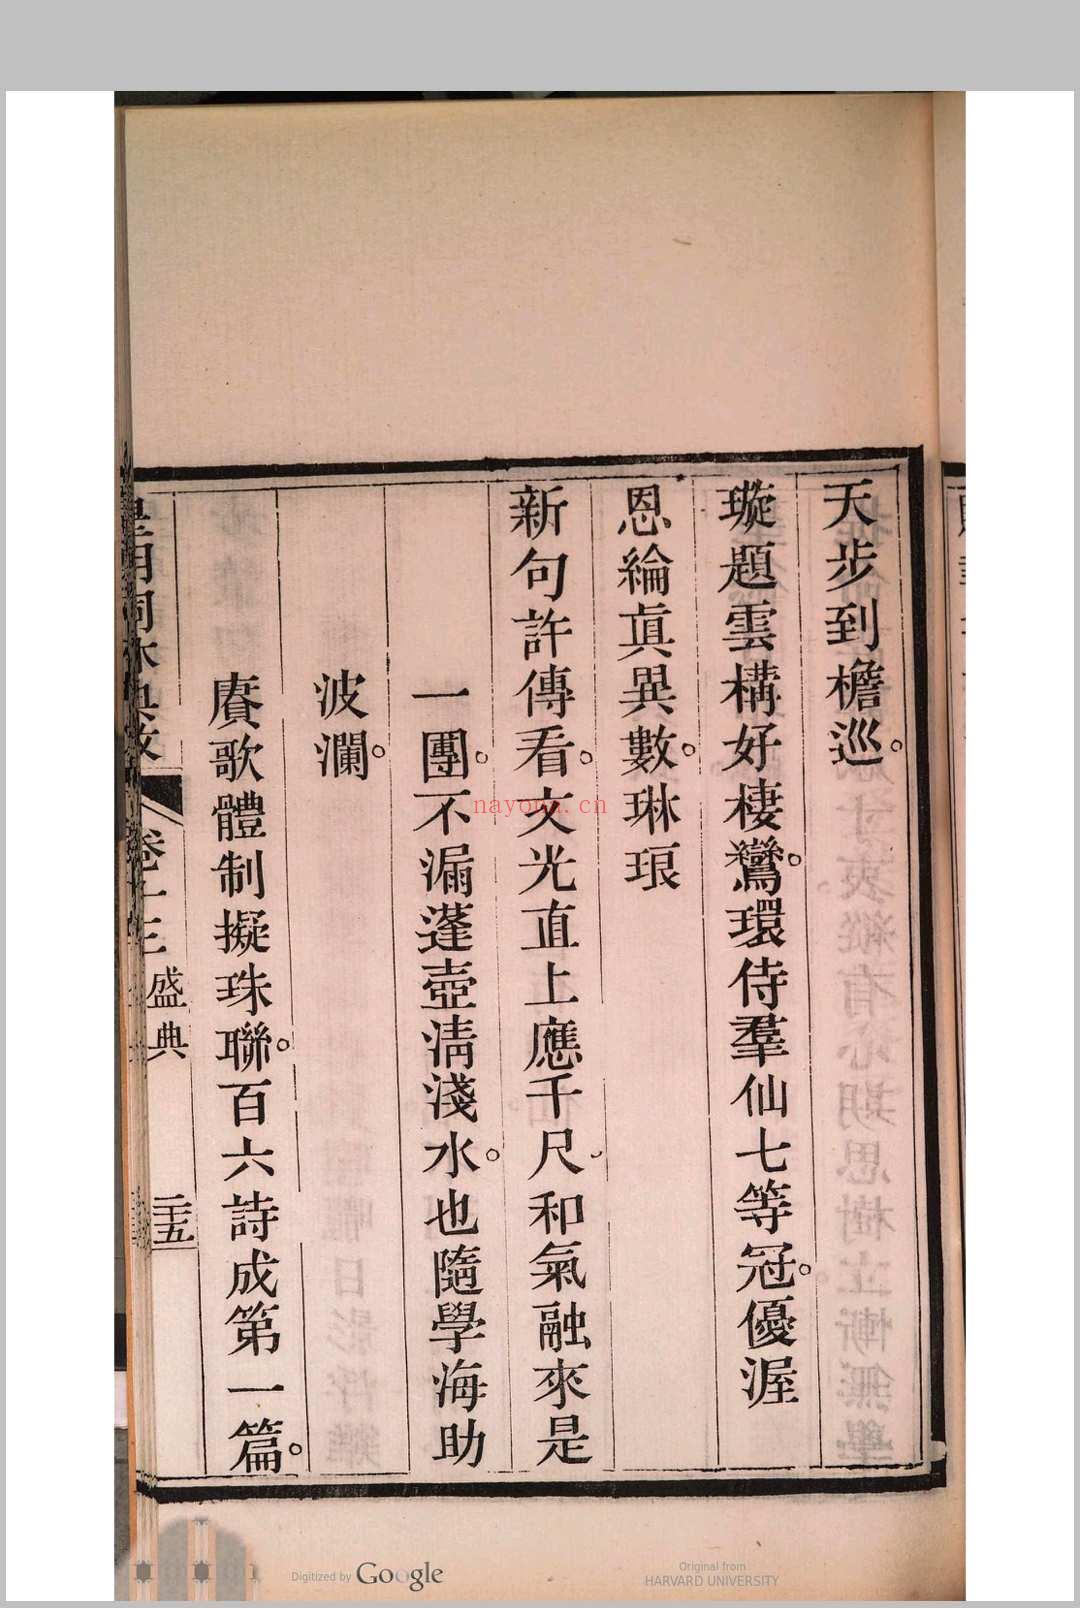 天步到檐巡。
璇題雲構好棲鸞。環侍羣仙七等冠。優渥
恩綸眞異數。琳琅
新句許傳看。文光直上應千尺。和氣融來是
一團。不漏蓬壺淸淺水。也隨學海助
波瀾。
賡歌體制擬珠聯。百六詩成第一篇。
卷十三 盛典 二十五
nayona.cn
Digitized by Google
Original from
HARVARD UNIVERSITY